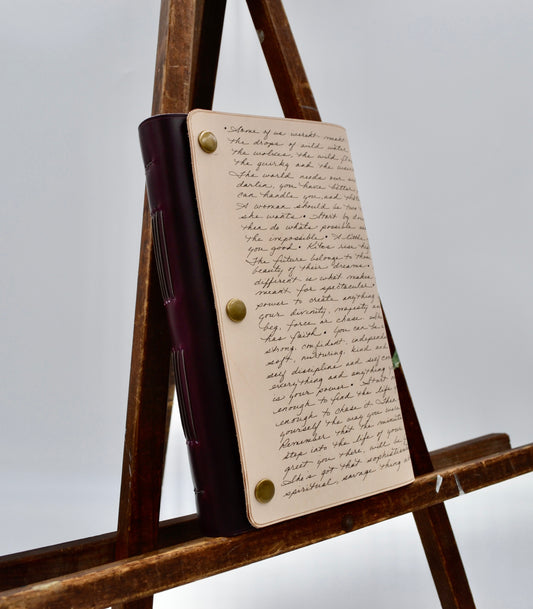 • Some of us weren't meant
the drops of wild water
the wolves, the wild
the quirky and the
The world needs our
darlin, you have better
can handle you, and
A woman should be two
she wants • Start by
then do what's possible
the impossible • A little
you good • Kites rise
The future belongs to
beauty of their dreams •
different is what makes
meant for spectacular
power to create anything
your divinity, majesty
beg, force or chase.
has faith • You can be
strong, confident,
soft, nurturing, kind and
self discipline and self
everything and anything
is your power • Start
enough to find the life
enough to chase it •
yourself the way you
Remember that the
step into the life of your
greet you there, will
She's got that
spiritual, savage thing